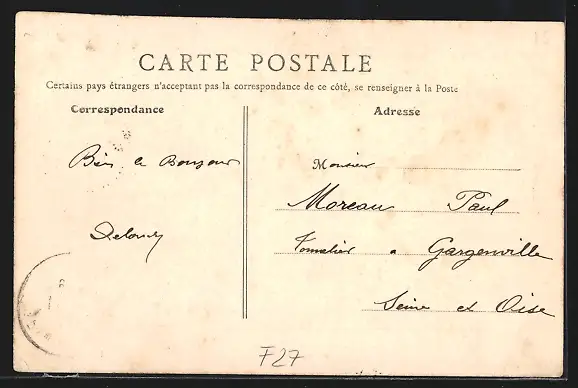 CARTE POSTALE
Certains pays étrangers n'acceptant pas la correspondance de ce côté, se renseigner à la Poste
Correspondance
Adresse
Bien le Bonjour
Monsieur
Moreau Paul
Tonnelier a Gargenville
Seine et Oise
F27